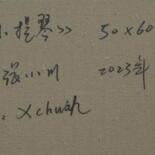 小提琴》 50×60
张小川 2023年
xchuan